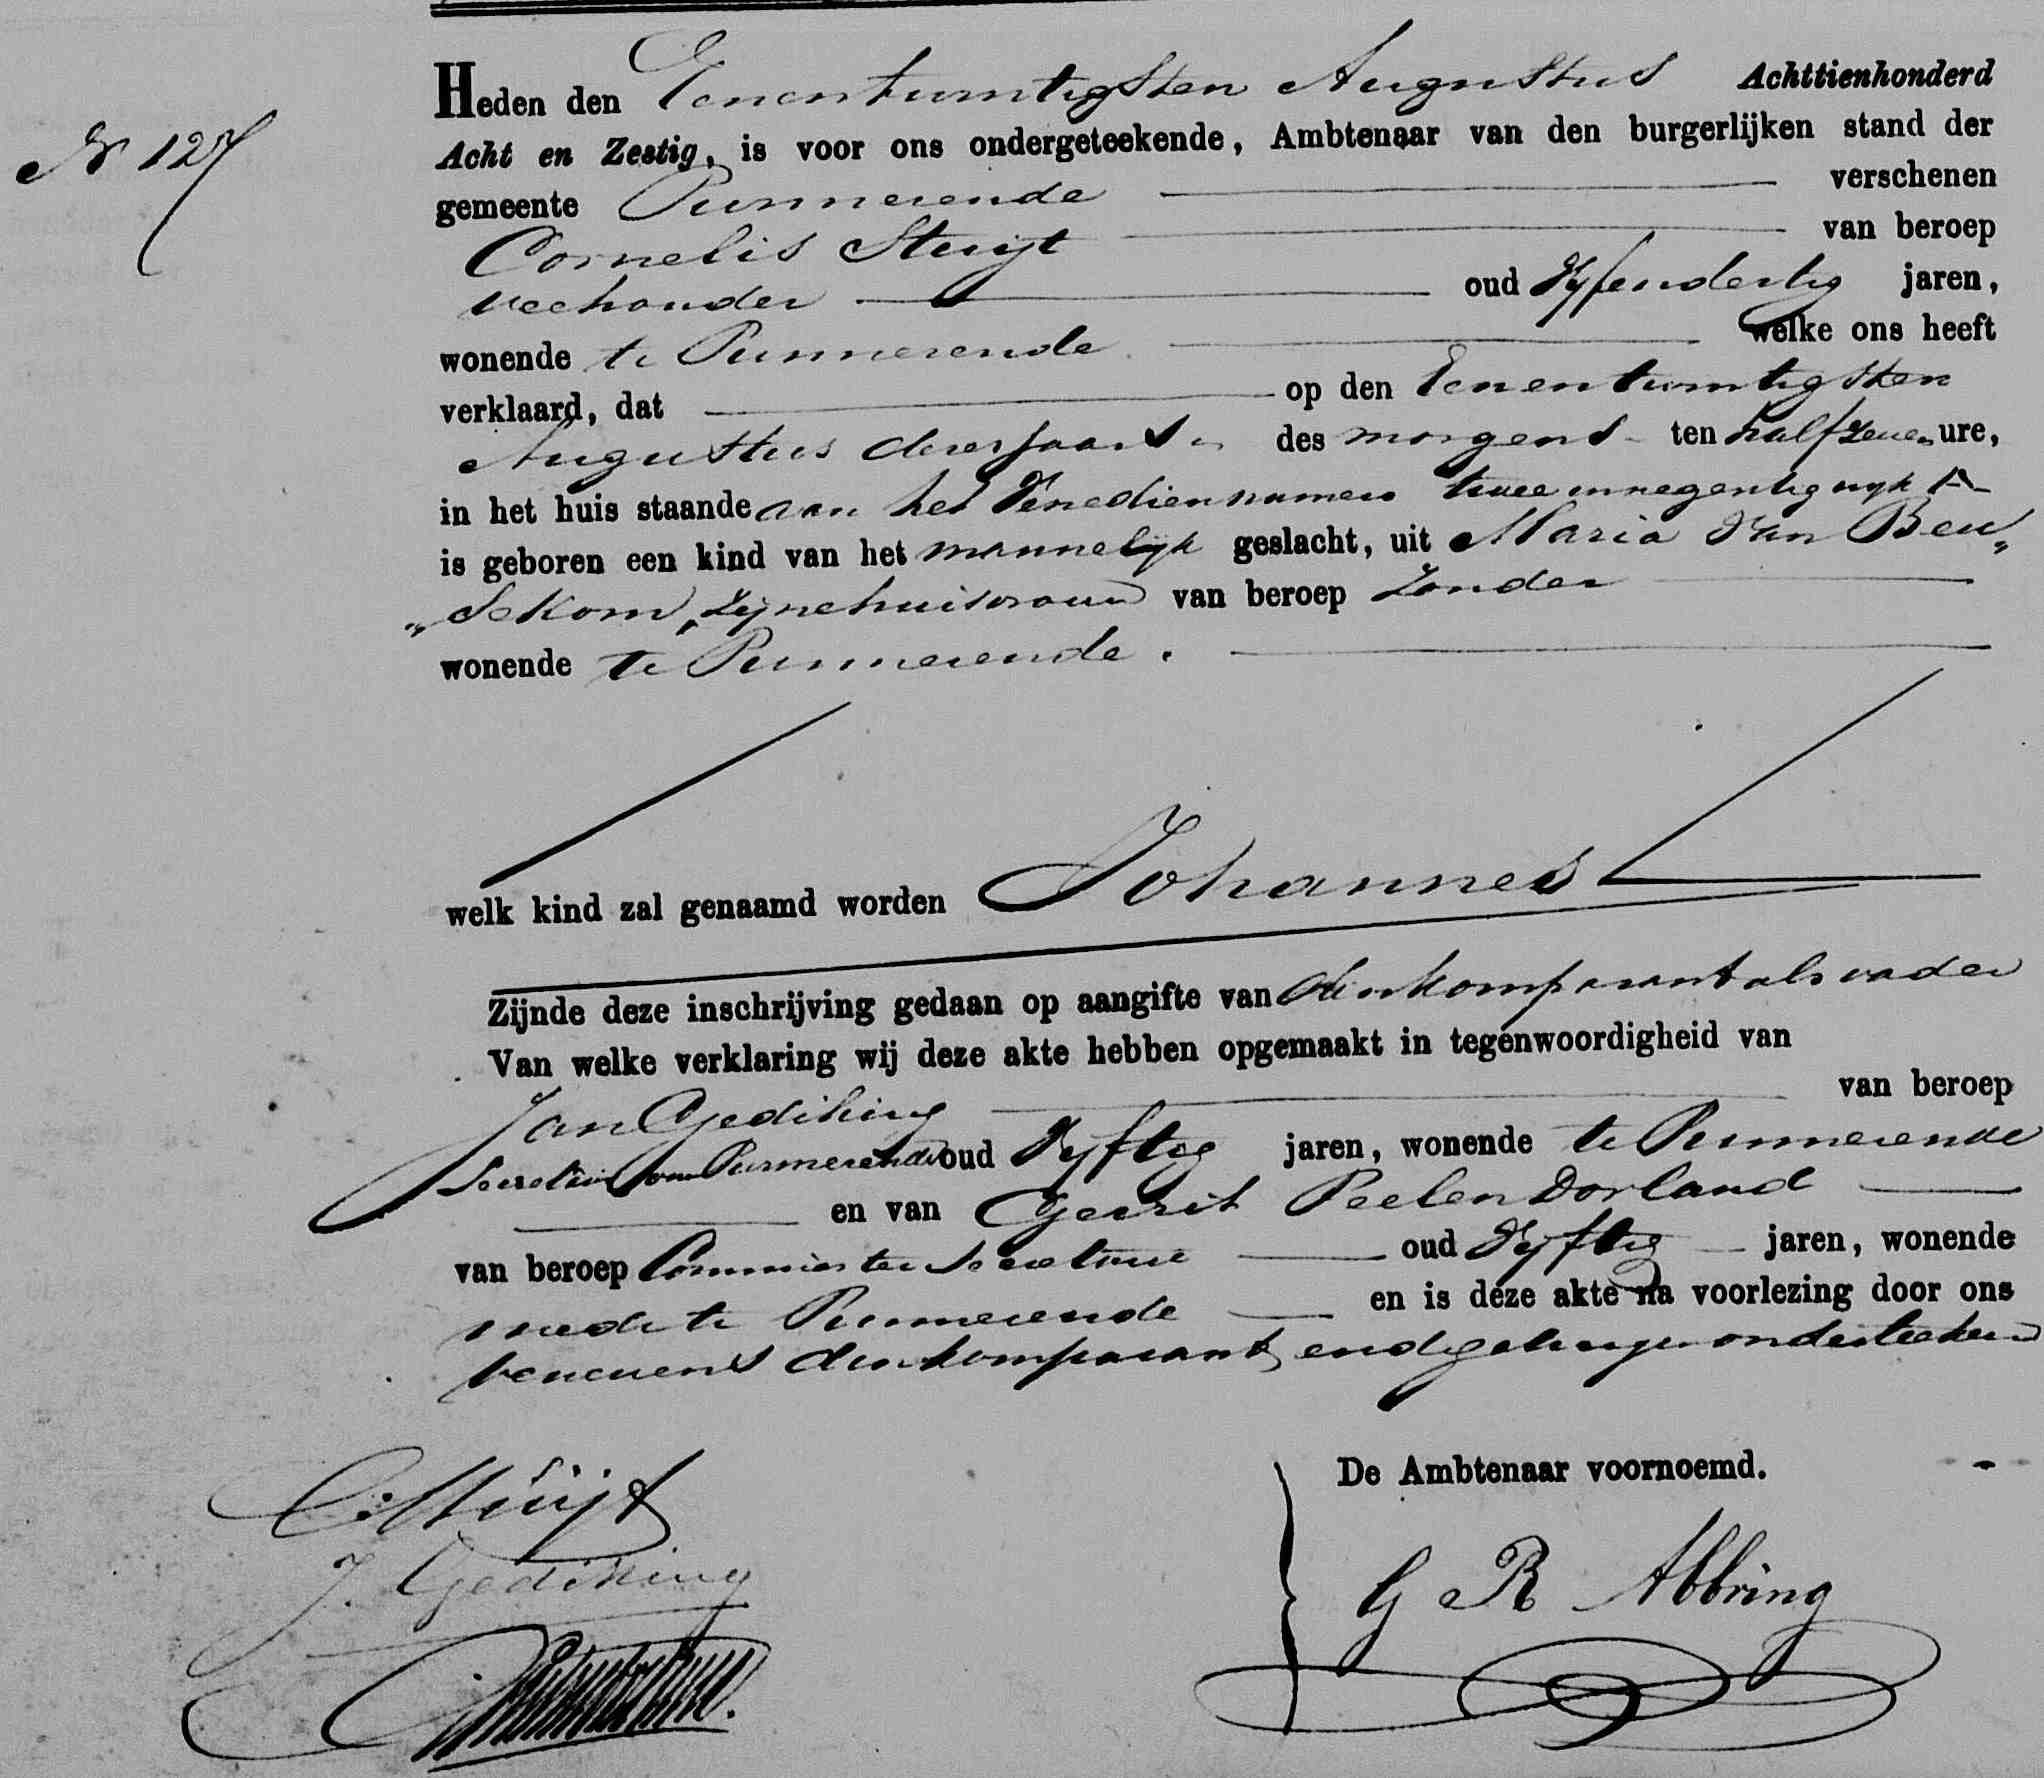 Heden den Eenentwintigsten Augustus Achttienhonderd
Nr 127
Acht en Zestig, is voor ons ondergeteekende, Ambtenaar van den burgerlijken stand der
gemeente Purmerende verschenen
Cornelis Stuijt van beroep
veehouder oud Vyfendertig jaren,
wonende te Purmerende welke ons heeft
verklaard, dat op den Eenentwintigsten
Augustus dezer jaars des morgens ten half zeven ure,
in het huis staande aan het Venedien numero twee en negentig wyk A
is geboren een kind van het mannelyk geslacht, uit Maria Van Beu„
„sekom, zyne huisvrouw van beroep zonder
wonende te Purmerende.
welk kind zal genaamd worden Johannes
Zijnde deze inschrijving gedaan op aangifte van den komparant als vader
Van welke verklaring wij deze akte hebben opgemaakt in tegenwoordigheid van
Jan Gediking van beroep
Secretaris van Purmerende oud Vyftig jaren, wonende te Purmerende
en van Gerrit Peelen Dorland
van beroep Commies ter Secretarie oud Vyftig jaren, wonende
mede te Purmerende en is deze akte na voorlezing door ons
benevens den komparant en de getuigen onderteekend
De Ambtenaar voornoemd.
C: Stuijt
J. Gediking
G R Abbring